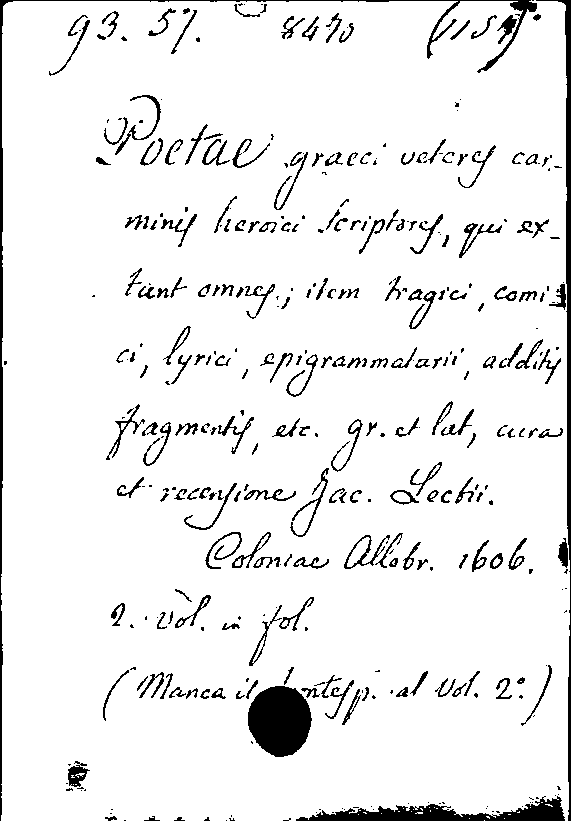 93. 57. 8470
Poetae graeci veteres car-
minis heroici scriptores, qui ex-
tant omnes; item tragici, comi-
ci, lyrici, epigrammatarii, additis
fragmentis, etc. gr. et lat, cura
et recensione Jac. Lectii.
Coloniae Allobr. 1606.
2. Vol. in fol.
(Manca il frontesp. al Vol. 2º.)